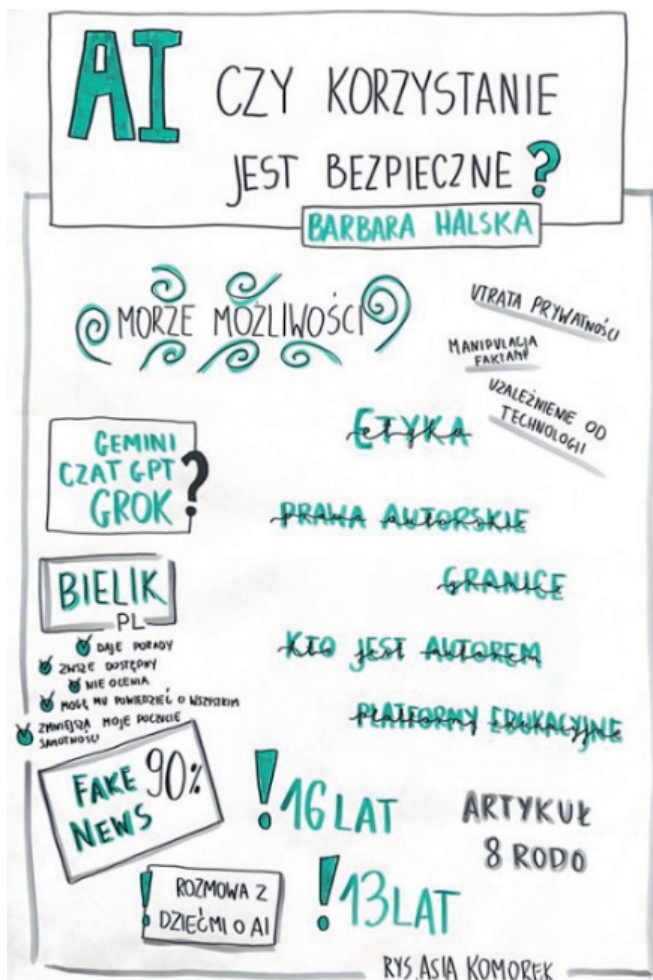 AI CZY KORZYSTANIE
JEST BEZPIECZNE?
BARBARA HALSKA
MORZE MOŻLIWOŚCI
UTRATA PRYWATNOŚCI
MANIPULACJA
FAKTAMI
UZALEŻNIENIE OD
TECHNOLOGII
GEMINI
CZAT GPT
GROK?
ETYKA
PRAWA AUTORSKIE
GRANICE
KTO JEST AUTOREM
PLATFORMY EDUKACYJNE
BIELIK
PL
DAJE PORADY
ZAWSZE DOSTĘPNY
NIE OCENIA
MOGĘ MU POWIEDZIEĆ O WSZYSTKIM
ZMNIEJSZA MOJE POCZUCIE
SAMOTNOŚCI
FAKE 90%
NEWS
!16 LAT
ARTYKUŁ
8 RODO
! ROZMOWA Z
DZIEĆMI O AI
!13 LAT
RYS. ASIA KOMOREK